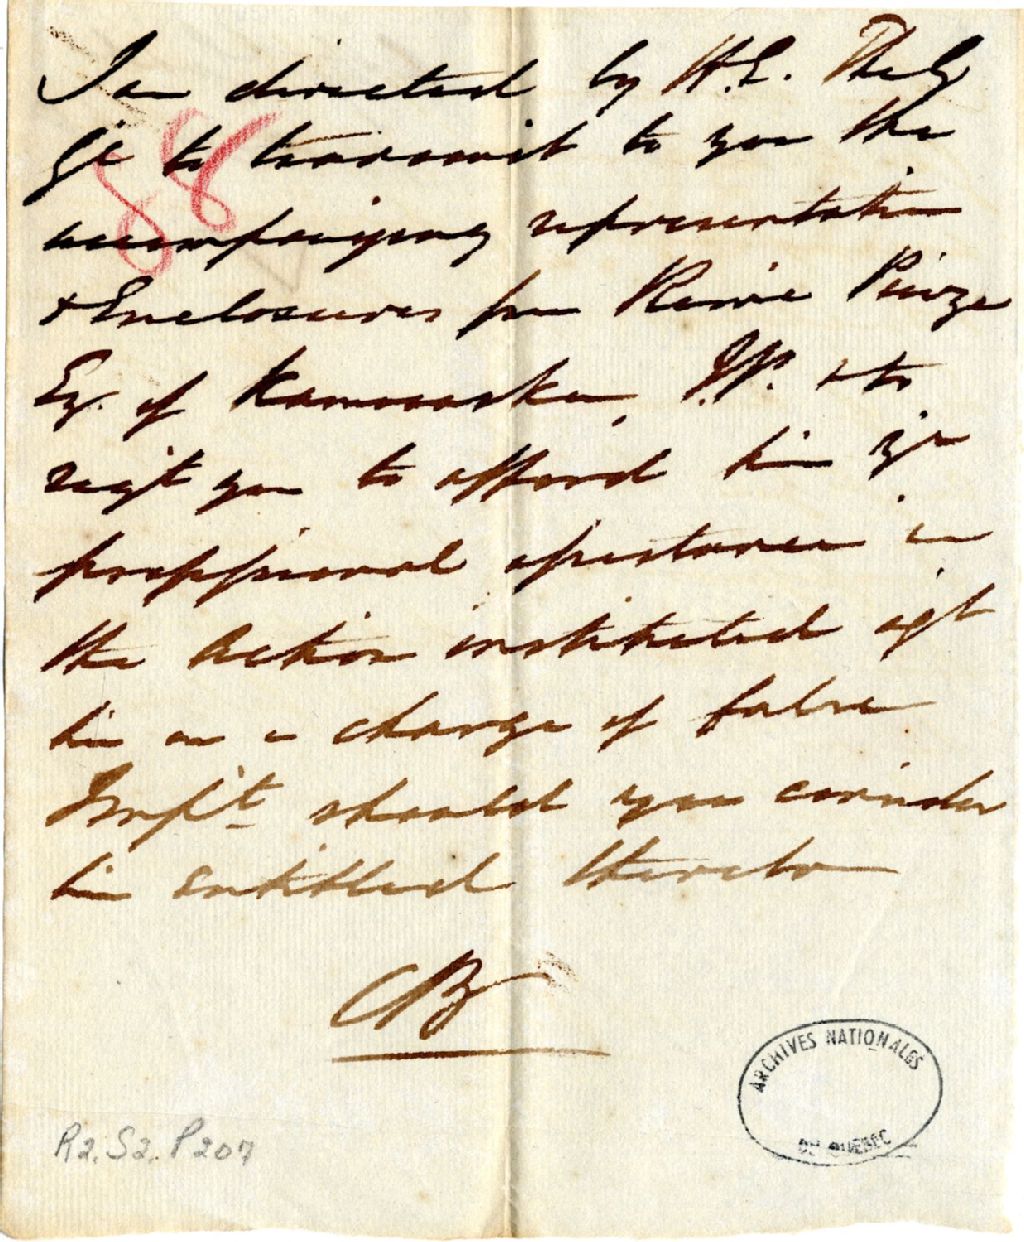 I am directed by H.E. The G
Gl to transmit to you the
88
accompanying representation
& Enclosures from Rémi Piuze
Esq. of Kamouraska, J.P. & to
reqt you to afford him yr
professional assistance in
the action instituted agt
him on a charge of false
Impt should you consider
him entitled thereto
ARCHIVES NATIONALES
DU QUEBEC
R2. S2. P207